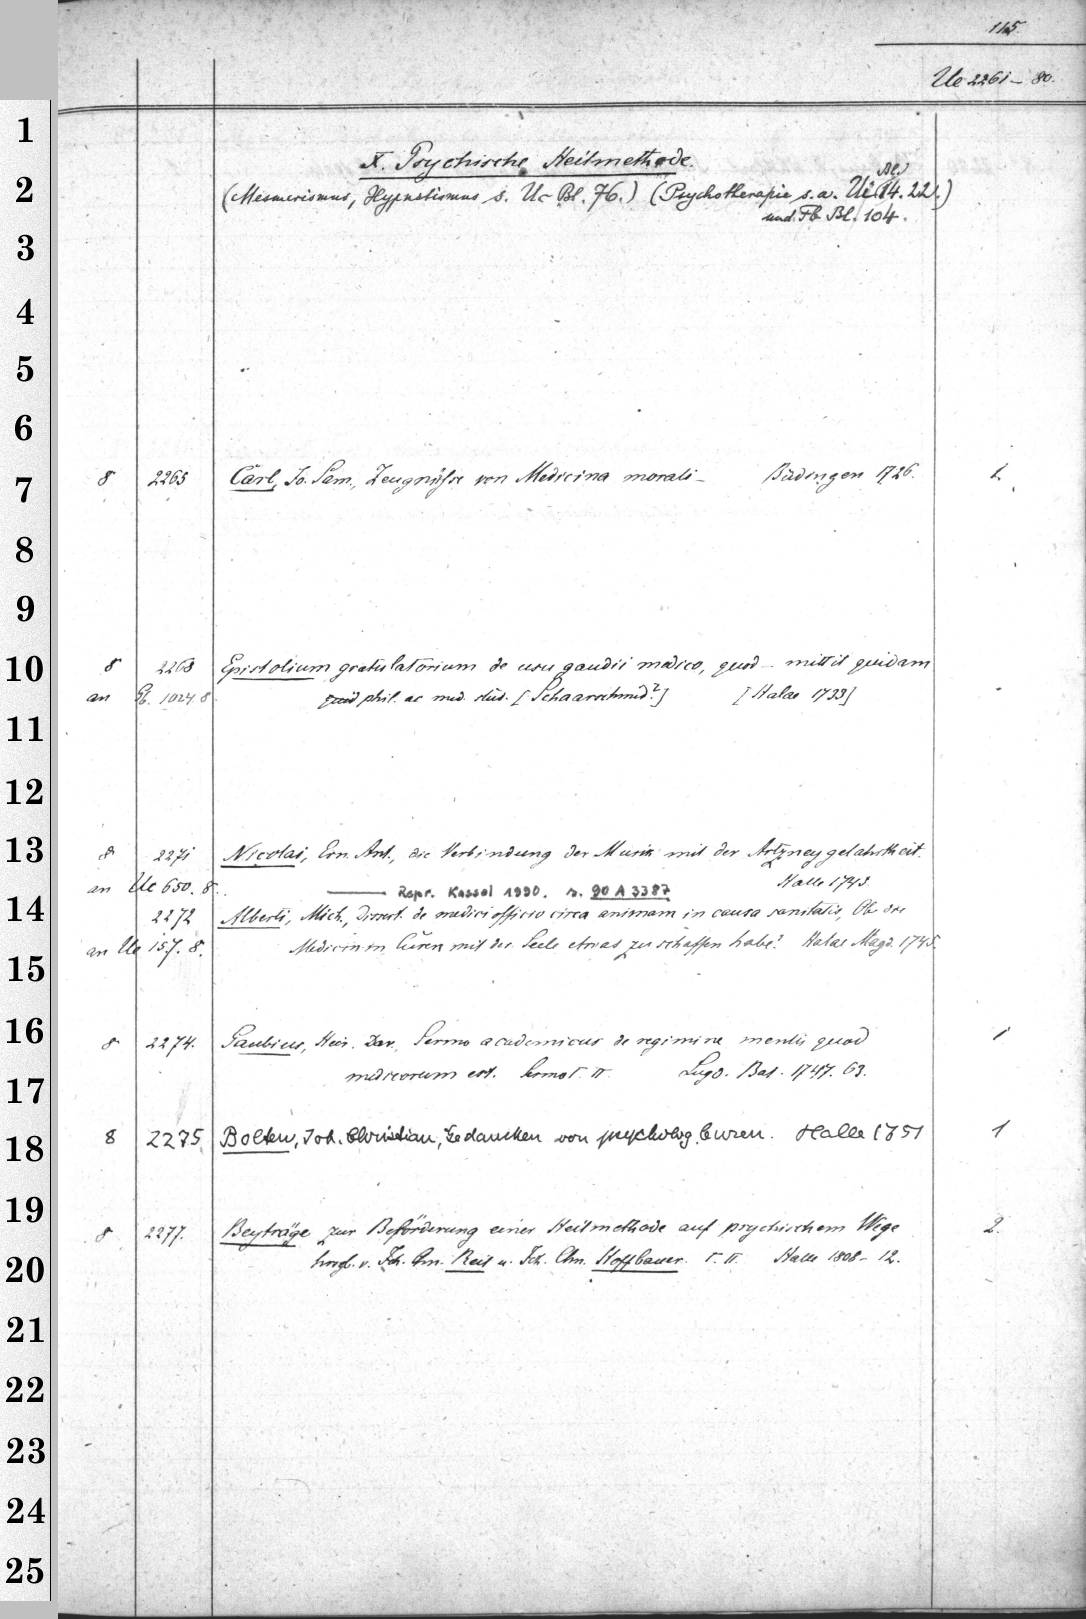 115
Ue 2261 – 80.
1
X. Psychische Heilmethode.
2
(Mesmerismus, Hypnotismus s. Uc Bl. 76.) (Psychotherapie s. a. Ue Bl. 14. 22.)
und Fb Bl. 104.
3
4
5
6
7
8 2265 Carl, Jo. Sam., Zeugnüsse von Medicina morali – Büdingen 1726. 1
8
9
10
8 2268 Epistolium gratulatorium de usu gaudii medico, quod – mittit quidam
an 1024. 8 phil. ac med. stud. [Schaarschmid?] [Halae 1733]
11
12
13
8 2271 Nicolai, Ern. Ant., die Verbindung der Musik mit der Artzneygelahrtheit.
an Ue 650. 8. Halle 1745.
——— Repr. Kassel 1990. s. 90 A 3387
14
2272 Alberti, Mich., Dissert. de medici officio circa animam in causa sanitatis, Ob der
an Ue 157. 8. Medicus im Curen mit der Seele etwas zu schaffen habe? Halae Magd. 1745.
15
16
8 2274. Gaubius, Hier. Dav., Sermo academicus de regimine mentis quod
medicorum est. Sermo I. II. Lugd. Bat. 1747. 63. 1
17
18
8 2275 Bolten, Joh. Christian, Gedancken von psycholog. Curen. Halle 1751 1
19
8 2277. Beyträge zur Beförderung einer Heilmethode auf psychischem Wege 2.
20
hrsgb. v. Joh. Chn. Reil u. Joh. Chn. Hoffbauer. I. II. Halle 1808 – 12.
21
22
23
24
25